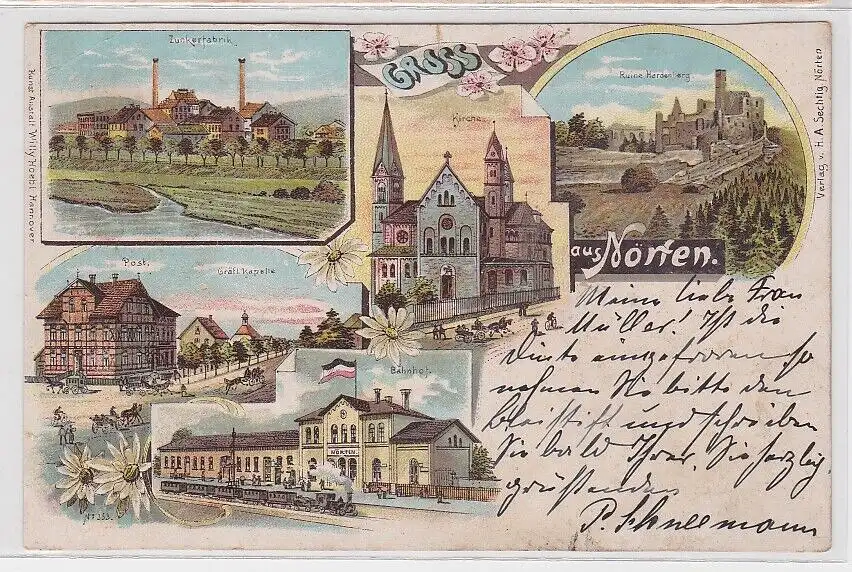 Zuckerfabrik.
GRUSS
Ruine Hardenberg
Kirche.
aus Nörten.
Post.
Gräfl. Kapelle
Bahnhof.
NÖRTEN.
No 353.
Kunst Anstalt Willy Hoebel Hannover
Verlag v. H. A. Sechtig Nörten
Meine liebe Frau
Müller! Ist die
Dinte eingefroren so
nehmen Sie bitte den
Bleistift und schreiben
Sie bald Ihrer, Sie herzlig
grüssenden
P. Schneemann